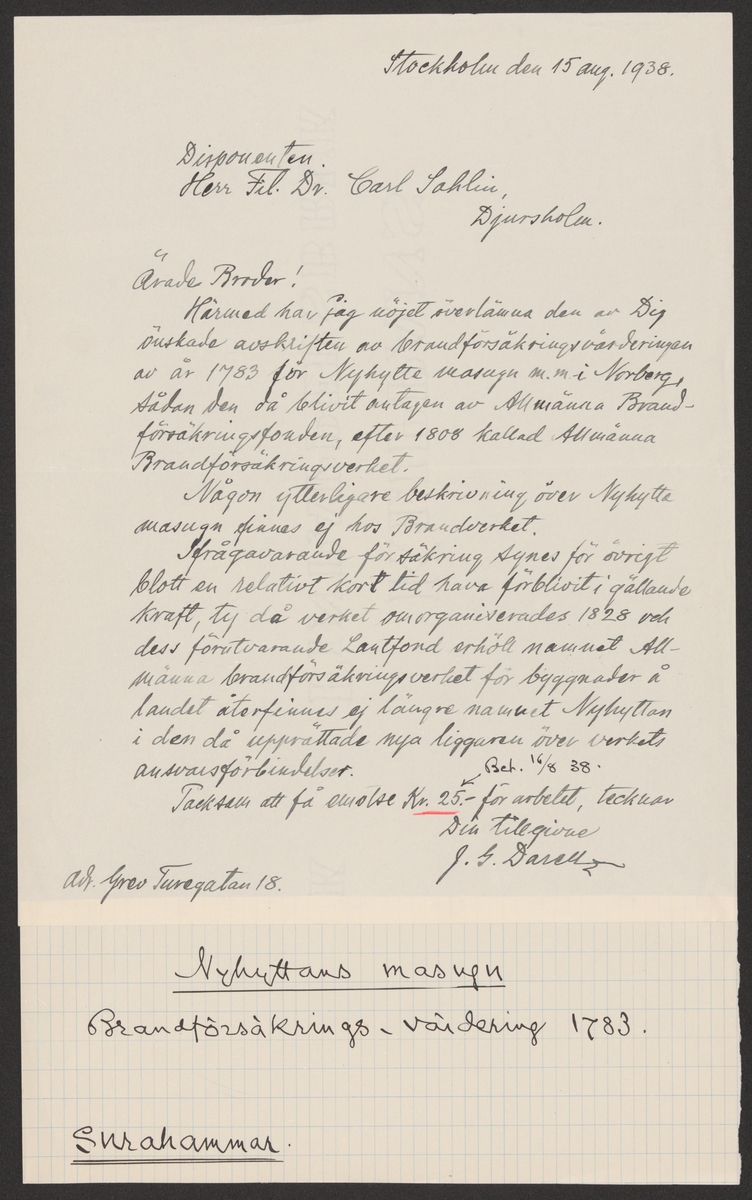 Stockholm den 15 aug. 1938.
Disponenten.
Herr Fil. Dr. Carl Sahlin,
Djursholm.
Ärade Broder!
Härmed har jag nöjet överlämna den av Dig
önskade avskriften av brandförsäkringsvärderingen
av år 1783 för Nyhytte masugn m.m. i Norberg,
sådan den då blivit antagen av Allmänna Brand-
försäkringsfonden, efter 1808 kallad Allmänna
Brandförsäkringsverket.
Någon ytterligare beskrivning över Nyhytte
masugn finnes ej hos Brandverket.
Ifrågavarande försäkring synes för övrigt
blott en relativt kort tid hava förblivit i gällande
kraft, ty då verket omorganiserades 1828 och
dess förutvarande Lantfond erhöll namnet All-
männa brandförsäkringsverket för byggnader å
landet återfinnes ej längre namnet Nyhyttan
i den då upprättade nya liggaren över verkets
ansvarsförbindelser.
Bet. 16/8 38.
Tacksam att få emotse Kr. 25.- för arbetet, tecknar
Din tillgivne
J. G. Darell
Adr. Grev Turegatan 18.
Nyhyttans masugn
Brandförsäkrings-värdering 1783.
Surahammar.